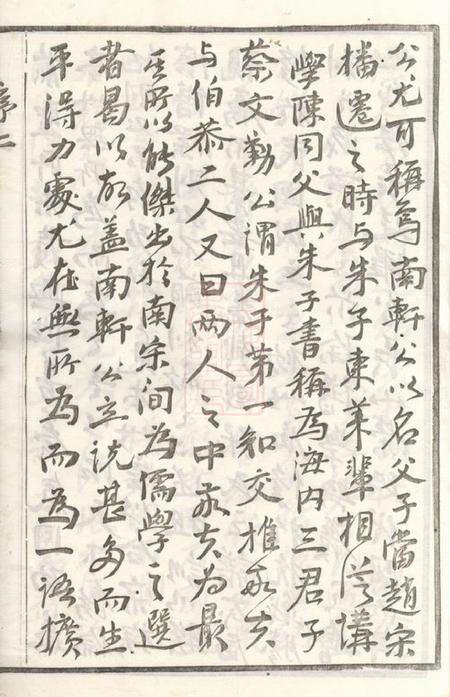 公尤可稱焉南軒公以名父子當趙宋
播遷之時与朱子東萊輩相從講
學陳同父與朱子書稱為海内三君子
蔡文勤公謂朱子第一知交推敬夫
与伯恭二人又曰两人之中敬夫为最
其所以能傑出於南宋间為儒學之選
者曷以故盖南軒公立说甚多而生
平得力處尤在無所為而為一语擴
序二